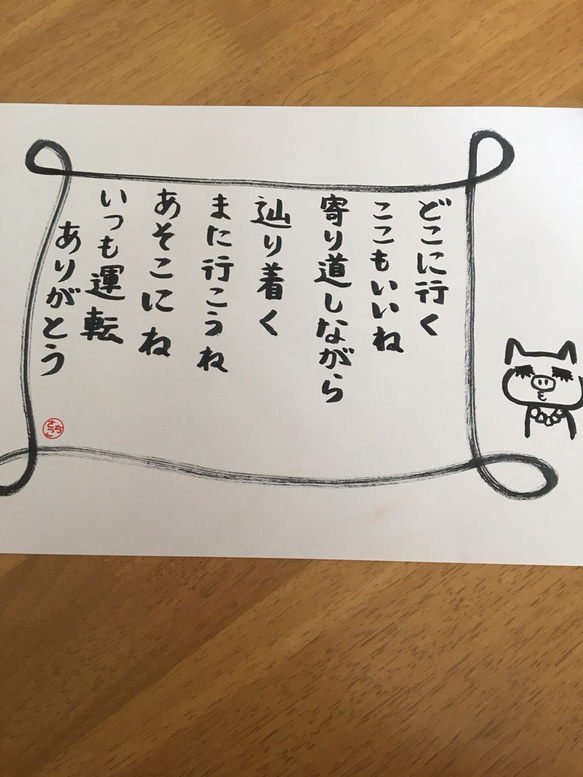 どこに行く
ここもいいね
寄り道しながら
辿り着く
また行こうね
あそこにね
いつも運転
ありがとう